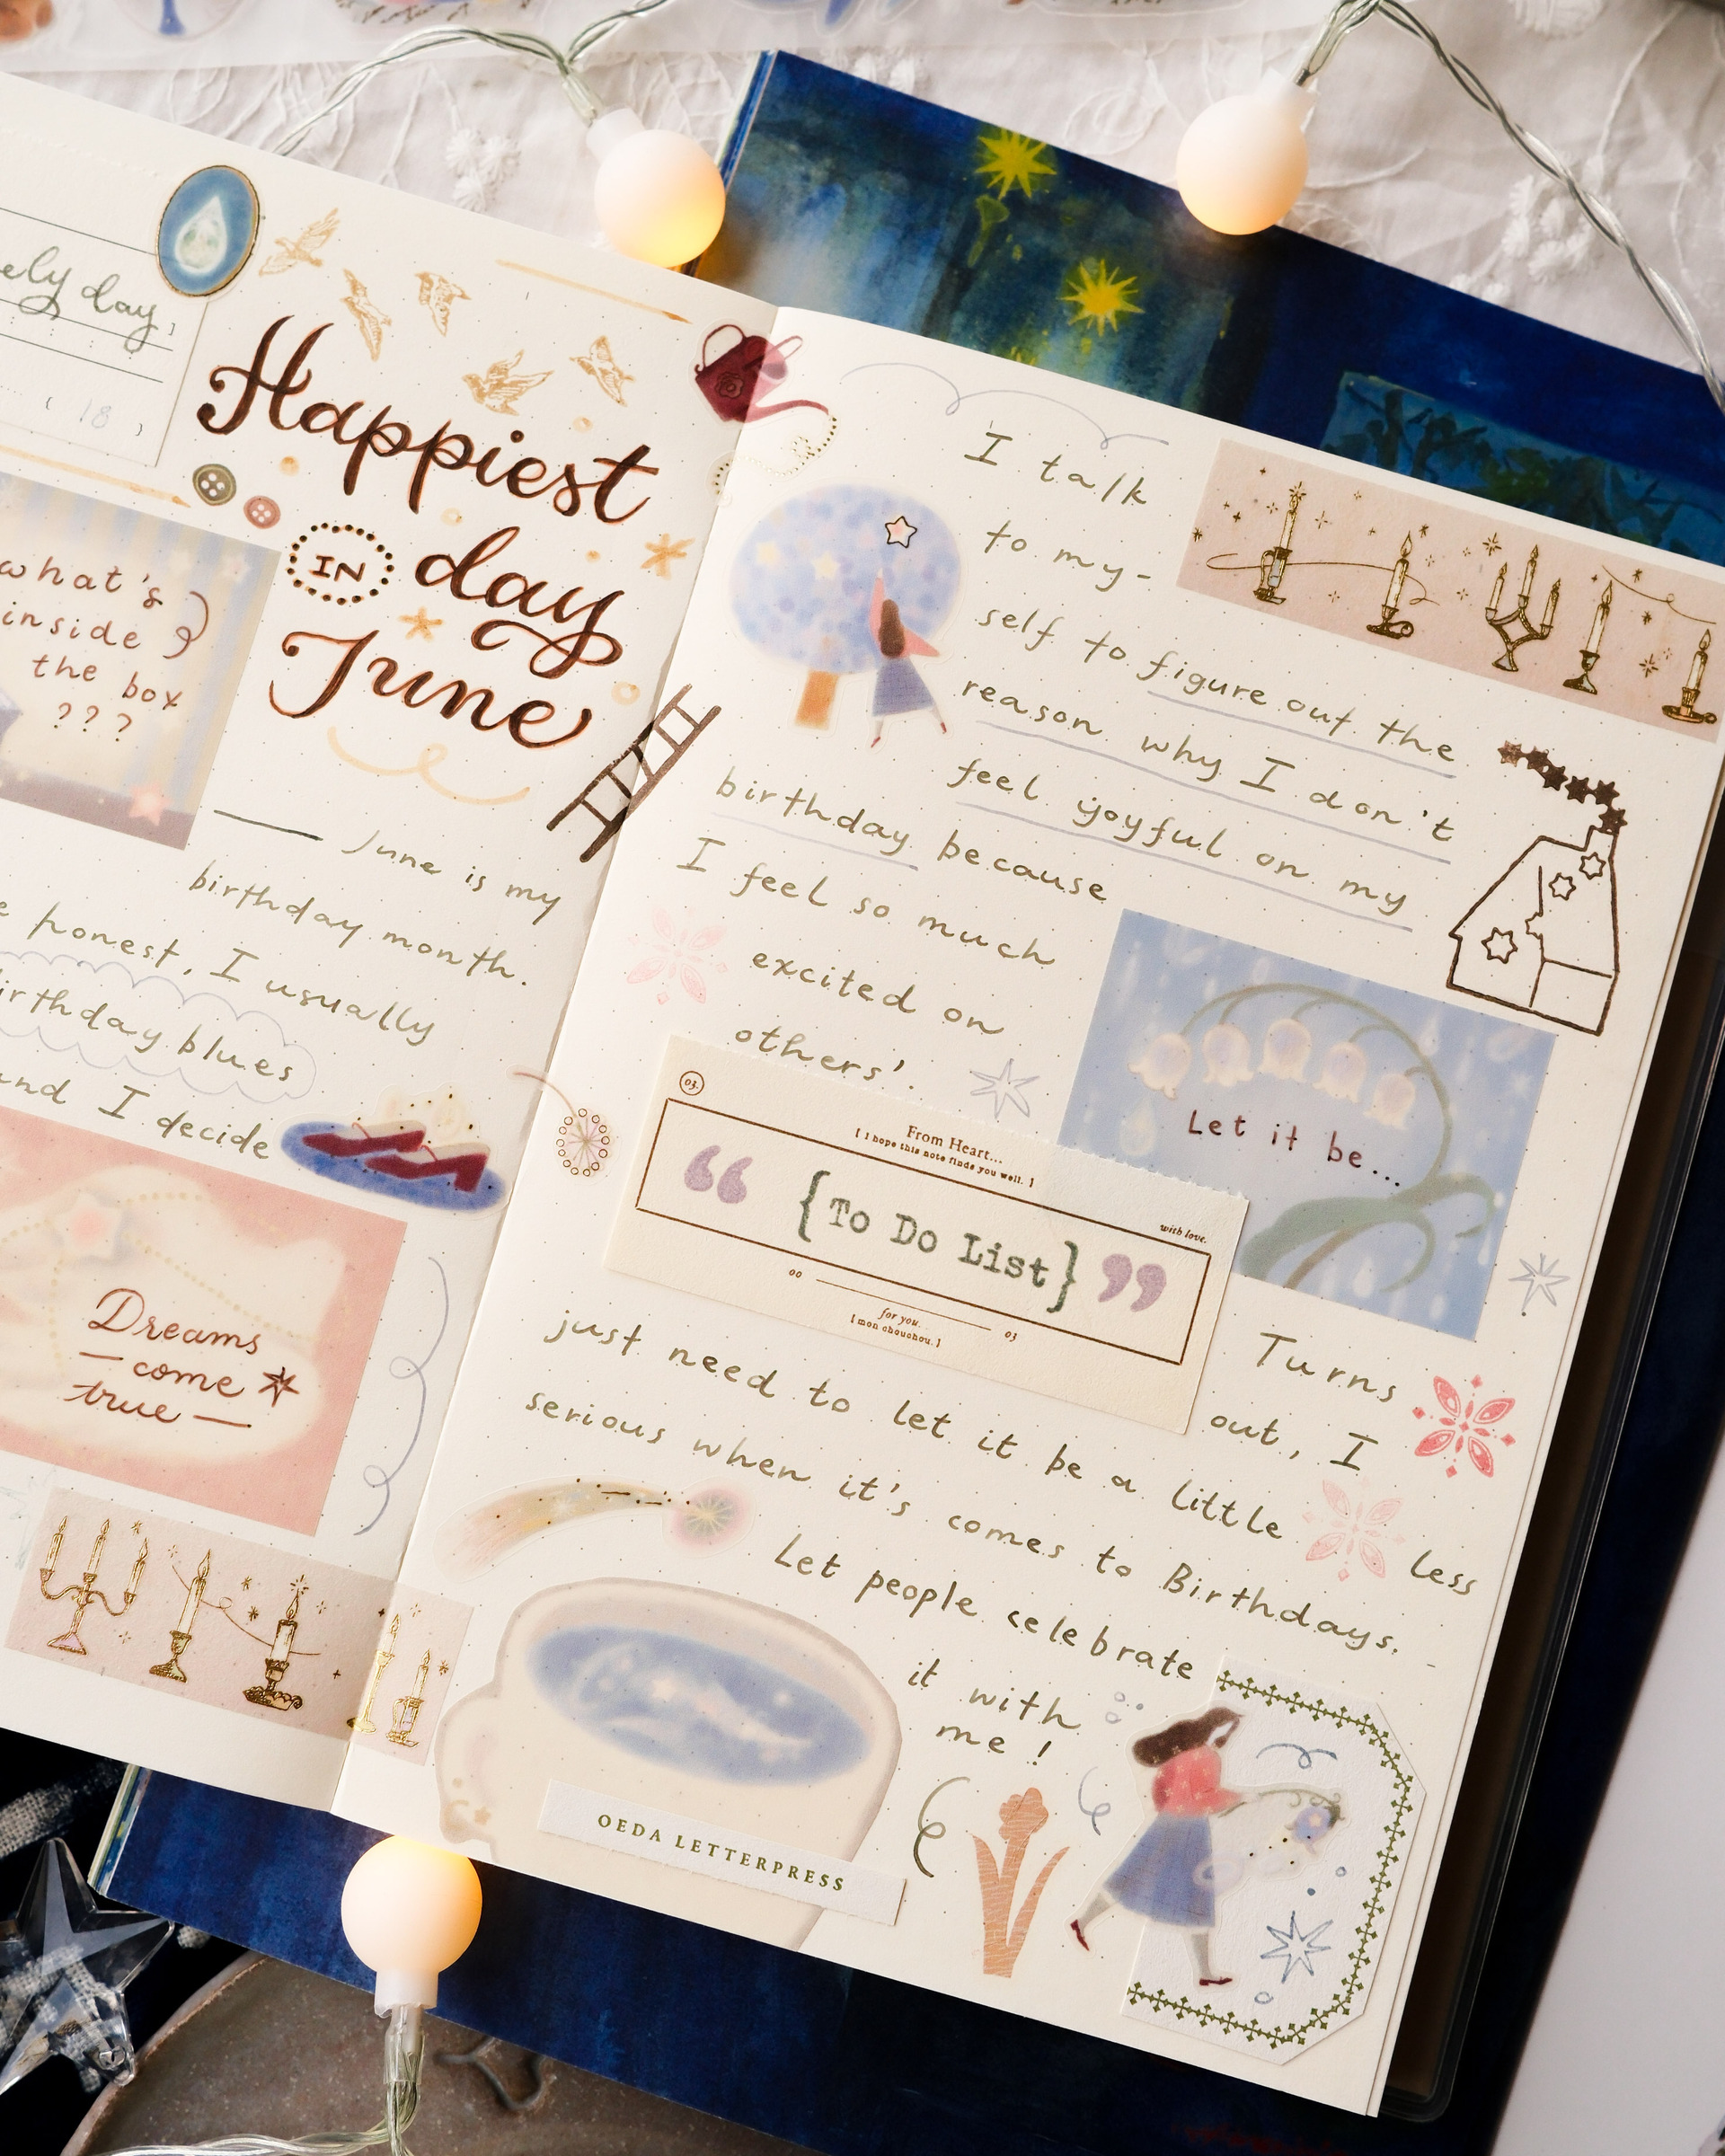 day,
( 18 )
Happiest
IN day
June
what's
inside
the box
???
June is my
birthday month.
honest, I usually
birthday blues
and I decide
Dreams
come
true
I talk
to my-
self to figure out the
reason why I don't
feel joyful on my
birthday because
I feel so much
excited on
others'.
Let it be...
03.
From Heart...
[ I hope this note finds you well. ]
with love.
“ {To Do List} ”
00 03
for you.
[ mon chouchou. ]
Turns
out, I
just need to let it be a little less
serious when it's comes to Birthdays.
Let people celebrate
it with
me!
OEDA LETTERPRESS